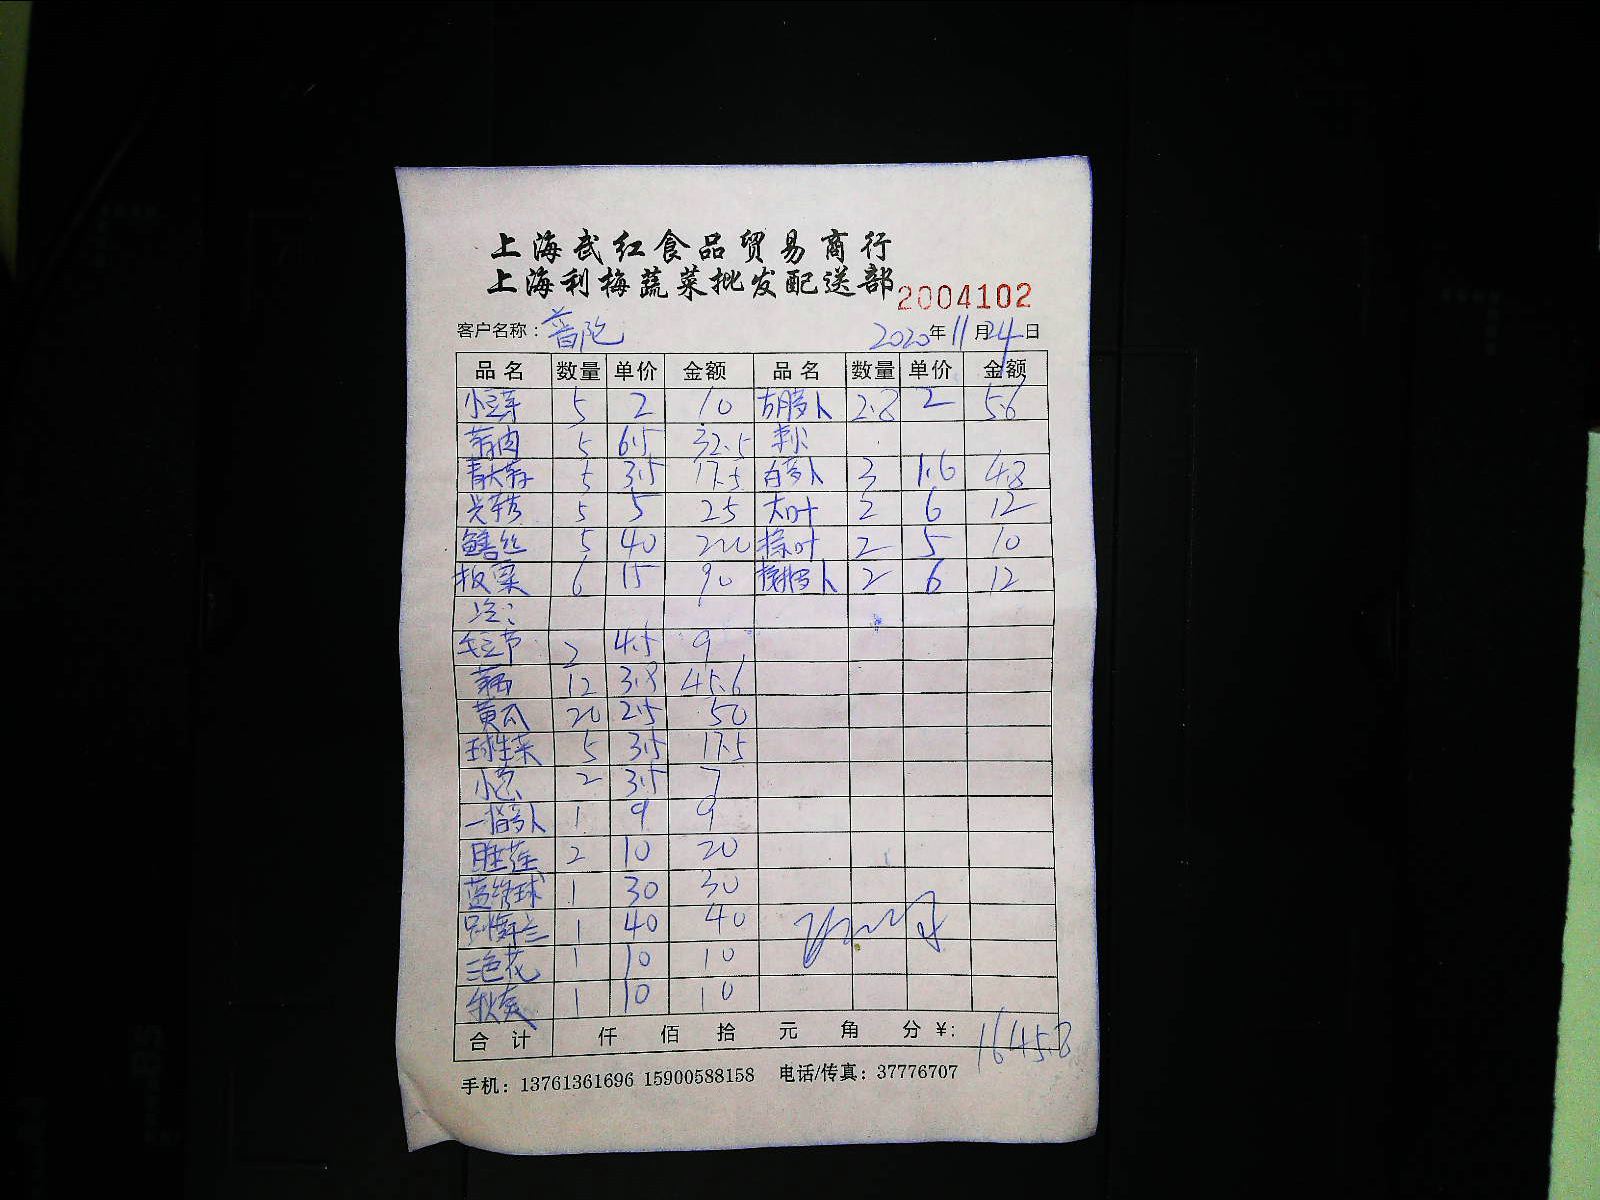 上海武红食品贸易商行
上海利梅蔬菜批发配送部 2004102
客户名称：普陀 2020年11月24日
品名 数量 单价 金额 品名 数量 单价 金额
小豆芽 5 2 10 胡萝卜 2.8 2 5.6
5 6.5 32.5
5 3.5 17.5 白萝卜 3 1.6 4.8
5 5 25 大叶 2 6 12
鳝丝 5 40 200 粽叶 2 5 10
板栗 6 15 90 樱桃萝卜 2 6 12
冷：
长豆节 2 4.5 9
藕 12 3.8 45.6
黄瓜 20 2.5 50
球生菜 5 3.5 17.5
小葱 2 3.5 7
一指萝卜 1 9 9
2 10 20
1 30 30
1 40 40
三色花 1 10 10
1 10 10
合计 仟 佰 拾 元 角 分 ￥: 1645.8
手机：13761361696 15900588158 电话/传真：37776707